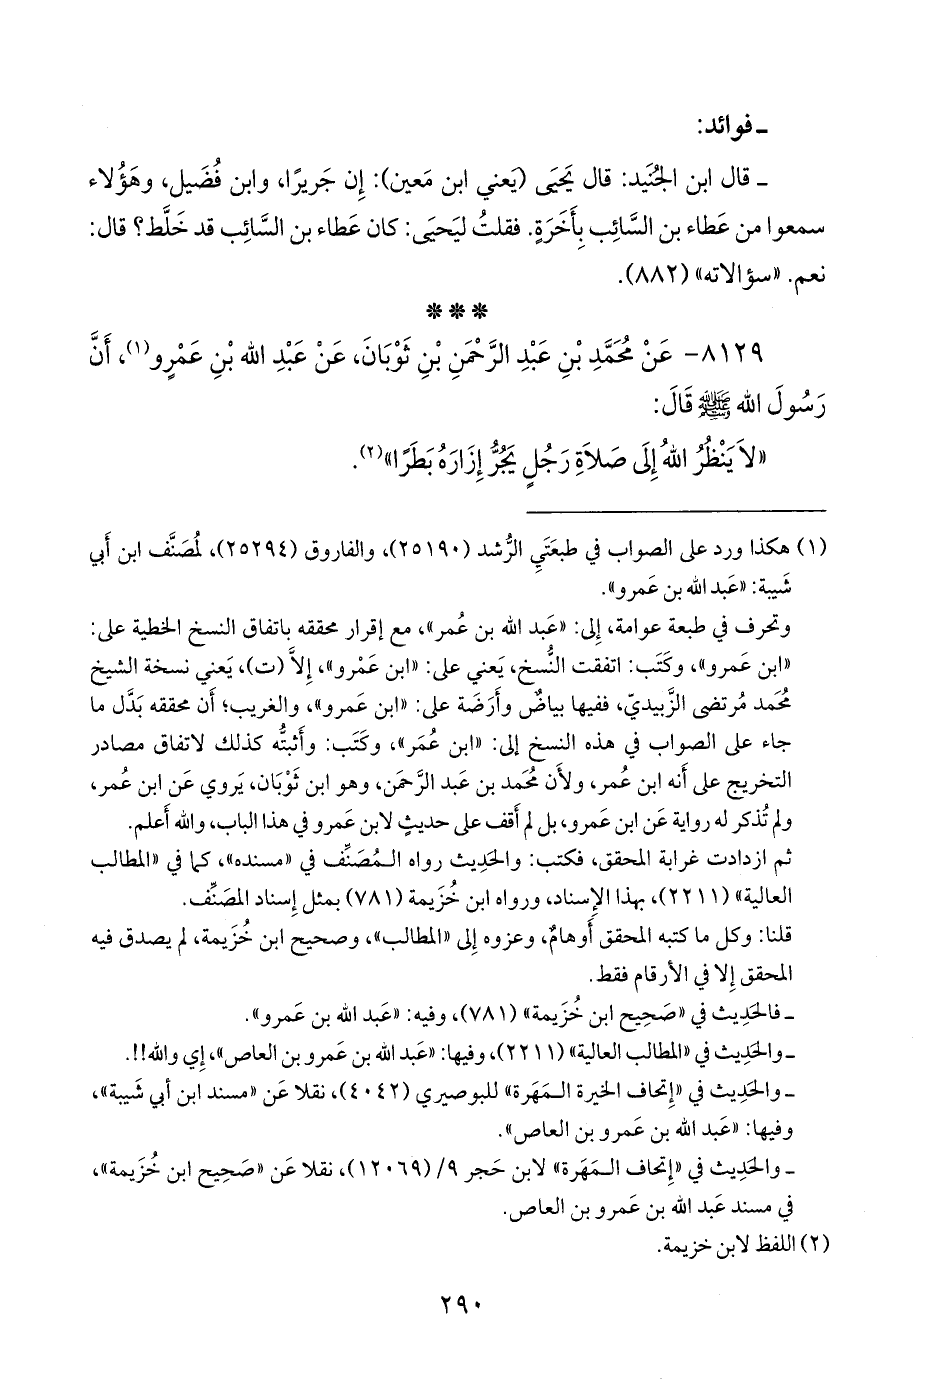 ـ فوائد:
ـ قال ابن الجُنَيد: قال يَحيَى (يَعني ابن مَعين): إن جَريرًا، وابن فُضَيل، وهَؤُلاء
سمعوا من عَطاء بن السَّائِب بِأَخَرَةٍ. فقلتُ ليَحيَى: كان عَطاء بن السَّائِب قد خَلَّط؟ قال:
نعم. «سؤالاته» (٨٨٢).
* * *
٨١٢٩- عَنْ مُحَمَّدِ بْنِ عَبْدِ الرَّحْمَنِ بْنِ ثَوْبَانَ، عَنْ عَبْدِ اللهِ بْنِ عَمْرٍو(١)، أَنَّ
رَسُولَ اللهِ ﷺ قَالَ:
«لاَ يَنْظُرُ اللهُ إِلَى صَلاَةِ رَجُلٍ يَجُرُّ إِزَارَهُ بَطَرًا»(٢).
(١) هكذا ورد على الصواب في طبعَتَي الرُّشد (٢٥١٩٠)، والفاروق (٢٥٢٩٤)، لمُصَنَّف ابن أَبي
شَيبة: «عَبد الله بن عَمرو».
وتحرف في طبعة عوامة، إلى: «عَبد الله بن عُمر»، مع إقرار محققه باتفاق النسخ الخطية على:
«ابن عَمرو»، وكَتَب: اتفقت النُّسخ، يَعني على: «ابن عَمْرو»، إلاَّ (ت)، يَعني نسخة الشيخ
مُحَمد مُرتضى الزَّبيديّ، ففيها بياضٌ وأَرَضَة على: «ابن عمرو»، والغريب؛ أَن محققه بَدَّل ما
جاء على الصواب في هذه النسخ إلى: «ابن عُمَر»، وكَتَب: وأَثبتُّه كذلك لاتفاق مصادر
التخريج على أَنه ابن عُمر، ولأَن مُحَمد بن عَبد الرَّحمَن، وهو ابن ثَوْبَان، يَروي عَن ابن عُمر،
ولم تُذكر له رواية عَن ابن عَمرو، بل لم أَقف على حديثٍ لابن عَمرو في هذا الباب، والله أَعلم.
ثم ازدادت غرابة المحقق، فكتب: والحَدِيث رواه المُصَنِّف في «مسنده»، كما في «المطالب
العالية» (٢٢١١)، بهذا الإِسناد، ورواه ابن خُزَيمة (٧٨١) بمثل إِسناد المصَنِّف.
قلنا: وكل ما كتبه المحقق أَوهامٌ، وعزوه إلى «المطالب»، وصحيح ابن خُزَيمة، لم يصدق فيه
المحقق إلا في الأرقام فقط.
ـ فالحَدِيث في «صَحِيح ابن خُزَيمة» (٧٨١)، وفيه: «عَبد الله بن عَمرو».
ـ والحَدِيث في «المطالب العالية» (٢٢١١)، وفيها: «عَبد الله بن عَمرو بن العاص»، إي والله!!.
ـ والحَدِيث في «إِتحاف الخيرة المَهَرة» للبوصيري (٤٠٤٢)، نقلا عَن «مسند ابن أبي شَيبة»،
وفيها: «عَبد الله بن عَمرو بن العاص».
ـ والحَدِيث في «إِتحاف المَهَرة» لابن حَجر ٩/ (١٢٠٦٩)، نقلا عَن «صَحِيح ابن خُزَيمة»،
في مسند عَبد الله بن عَمرو بن العاص.
(٢) اللفظ لابن خزيمة.
٢٩٠